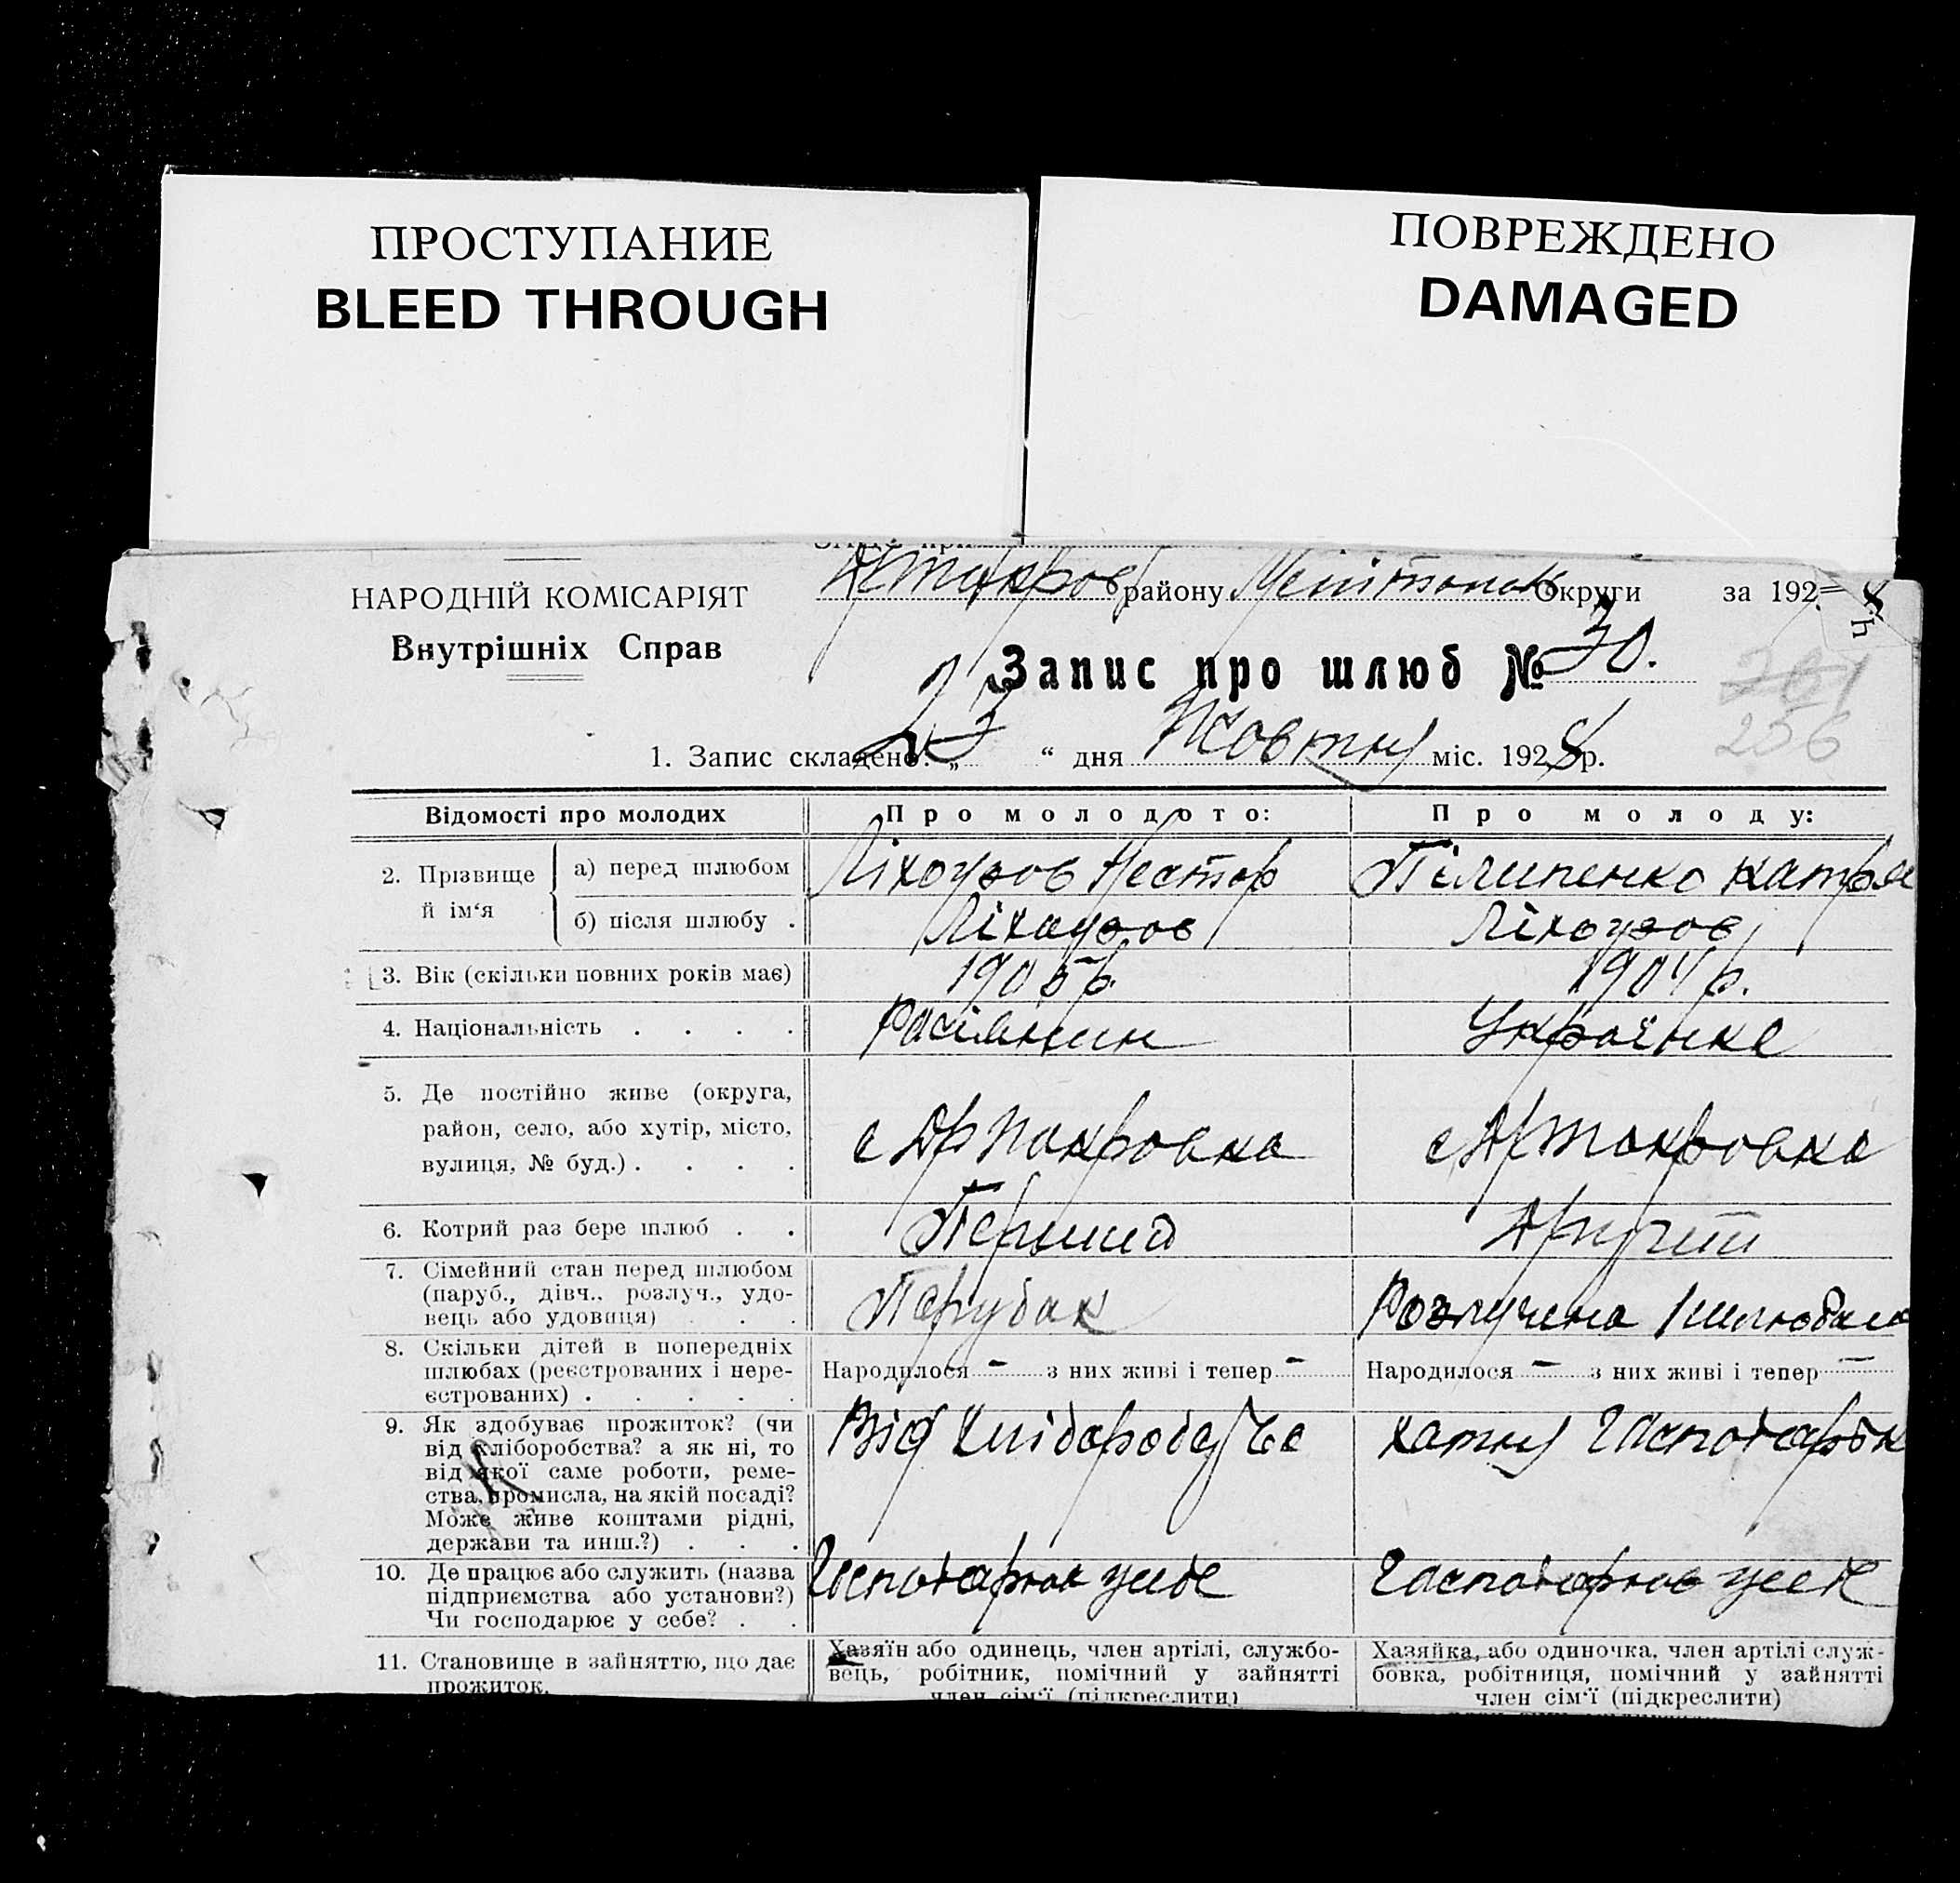 ПРОСТУПАНИЕ
BLEED THROUGH
ПОВРЕЖДЕНО
DAMAGED
району Округи за 1928
НАРОДНІЙ КОМІСАРІЯТ
Внутрішніх Справ
Запис про шлюб № 30.
261
256
1. Запис складено: „23“ дня Жовтня міс. 1928 р.
Відомості про молодих Про молодого: Про молоду:
2. Прізвище й ім‘я а) перед шлюбом Ліхоузов Нестор Пілипенко Катря
б) після шлюбу . Ліхаузов Ліхоузов
3. Вік (скільки повних років має) 1905р. 1904р.
4. Національність . . . . Расіянин Українка
5. Де постійно живе (округа,
район, село, або хутір, місто,
вулиця, № буд.) . . . . с Арпакровка с Артакровка
6. Котрий раз бере шлюб . . Перший Другий
7. Сімейний стан перед шлюбом
(паруб., дівч., розлуч., удо-
вець або удовиця) . . . Парубак Розлучена
8. Скільки дітей в попередніх
шлюбах (реєстрованих і нере-
єстрованих) . . . . . Народилося – з них живі і тепер – Народилося – з них живі і тепер –
9. Як здобуває прожиток? (чи
від хліборобства? а як ні, то
від якої саме роботи, реме-
ства, промисла, на якій посаді?
Може живе коштами рідні,
держави та инш.?) . . . Від Хатня
10. Де працює або служить (назва
підприємства або установи?)
Чи господарює у себе? . .
11. Становище в зайняттю, що дає
прожиток.
Хазяїн або одинець, член артілі, службо-
вець, робітник, помічний у зайнятті
член сім‘ї (підкреслити)
Хазяйка, або одиночка, член артілі служ-
бовка, робітниця, помічний у зайнятті
член сім‘ї (підкреслити)